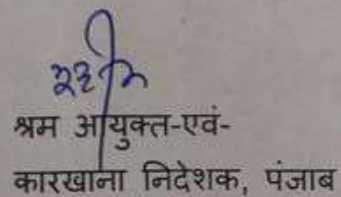 श्रम आयुक्त-एवं-
कारखाना निदेशक, पंजाब